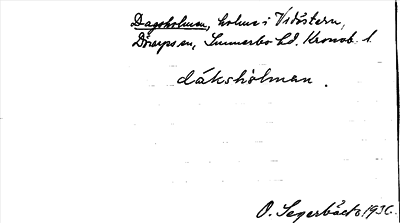 Dagsholmen, holme i Vidöstern,
Dörarps sn, Sunnerbo hd. Kronob. l.
dáksholman.
O. Segerbäck 1936.